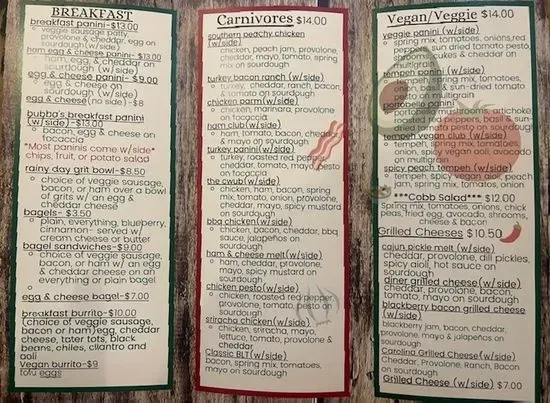 BREAKFAST
breakfast panini-$13.00
veggie sausage patty,
provolone & cheddar, egg on
sourdough(w/side)
ham egg & cheese panini- $13.00
ham, egg, & cheddar on
sourdough (w/side)
egg & cheese panini- $9.00
egg & cheese on
sourdough (w/side)
egg & cheese(no side)-$8
bubba's breakfast panini
(w/side)-$13.00
bacon, egg & cheese on
focaccia
*Most paninis come w/side*
chips, fruit, or potato salad
rainy day grit bowl-$8.50
choice of veggie sausage,
bacon, or ham over a bowl
of grits w/ an egg &
cheddar cheese
bagels- $3.50
plain, everything, blueberry,
cinnamon- served w/
cream cheese or butter
bagel sandwiches-$9.00
choice of veggie sausage,
bacon, or ham w/ an egg
& cheddar cheese on an
everything or plain bagel
egg & cheese bagel-$7.00
breakfast burrito-$10.00
(choice of veggie sausage,
bacon or ham)egg, cheddar
cheese, tater tots, black
beans, chiles, cilantro and
aoli
Vegan burrito-$9
tofu eggs
Carnivores $14.00
southern peachy chicken
(w/side)
chicken, peach jam, provolone,
cheddar, mayo, tomato, spring
mix on sourdough
turkey bacon ranch (w/side)
turkey, cheddar, ranch, bacon,
& tomato on sourdough
chicken parm(w/side)
chicken, marinara, provolone
on focaccia
ham club(w/side)
ham, tomato, bacon, cheddar
& mayo on sourdough
turkey panini(w/side)
turkey, roasted red pepper,
cheddar, tomato, mayo, pesto
on focaccia
the cwub(w/side)
chicken, ham, bacon, spring
mix, tomato, onion, provolone,
cheddar, mayo, spicy mustard
on sourdough
bbq chicken(w/side)
chicken, bacon, cheddar, bbq
sauce, jalapeños on
sourdough
ham & cheese melt(w/side)
ham, cheddar, provolone,
mayo, spicy mustard on
sourdough
chicken pesto(w/side)
chicken, roasted red pepper,
provolone, tomato, pesto on
sourdough
sriracha chicken(w/side)
chicken, sriracha, mayo,
lettuce, tomato, provolone &
cheddar
Classic BLT(w/side)
bacon, spring mix, tomatoes,
mayo on sourdough
Vegan/Veggie $14.00
veggie panini (w/side)
spring mix, tomatoes, onions,red
peppers, sun dried tomato pesto,
cukes & cheddar on
multigrain
tempeh panini (w/side)
tempeh, spring mix, tomatoes,
avocado, & sun-dried tomato
on multigrain
(w/side)
artichoke,
pesto on sourdough
tempeh vegan club (w/side)
tempeh, spring mix, tomatoes,
onion, spicy vegan aioli, avocado
on multigrain
spicy peach tempeh (w/side)
tempeh, spicy vegan aioli, peach
jam, spring mix, tomatoes, onion
***Cobb Salad*** $12.00
Spring mix, tomatoes, onions, chick
peas, fried egg, avocado, shrooms,
cheese & bacon
Grilled Cheeses $10.50
cajun pickle melt (w/side)
cheddar, provolone, dill pickles,
spicy aioli, hot sauce on
sourdough
diner grilled cheese(w/side)
cheddar, provolone, bacon,
tomato, mayo on sourdough
blackberry bacon grilled cheese
(w/side)
blackberry jam, bacon, cheddar,
provolone, mayo & jalapeños on
sourdough
Carolina Grilled Cheese(w/side)
Cheddar, Provolone, Ranch, Bacon
on Sourdough
Grilled Cheese (w/side) $7.00